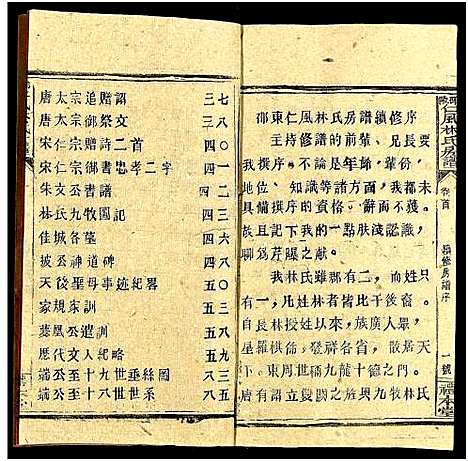 邵東仁風林氏房譜續修序
主持修譜的前輩、兄長要
我撰序。不論是年齡、輩份，
地位、知識、等諸方面，我都未
具備撰序的資格。辭而不獲。
故且記下我的一點膚淺感識，
聊為芹曝之獻。
我林氏雖郡有二，而姓只
有一，凡姓林者皆比干後裔。
自長林授姓以來，族廣人眾，
星羅棋佈，發祥各省，散居環
宇。東周世稱九龍十德之門，
唐有詔立雙闕之旌與九牧林氏
仁風林氏房譜
卷首
續修房譜序
一號
唐太宗追贈詔 三七
唐太宗御祭文 三八
宋仁宗贈詩二首 四〇
宋仁宗御書忠孝二字 四一
朱文公書譜 四二
林氏九牧圖記 四三
佳城各墓 四六
披公神道碑 四八
天後聖母事迹紀畧 五〇
家規家訓 五三
蔂凰公遺訓 五八
歷代文人紀略 五九
端公至十九世垂絲圖 八三
端公至十八世世系 八五